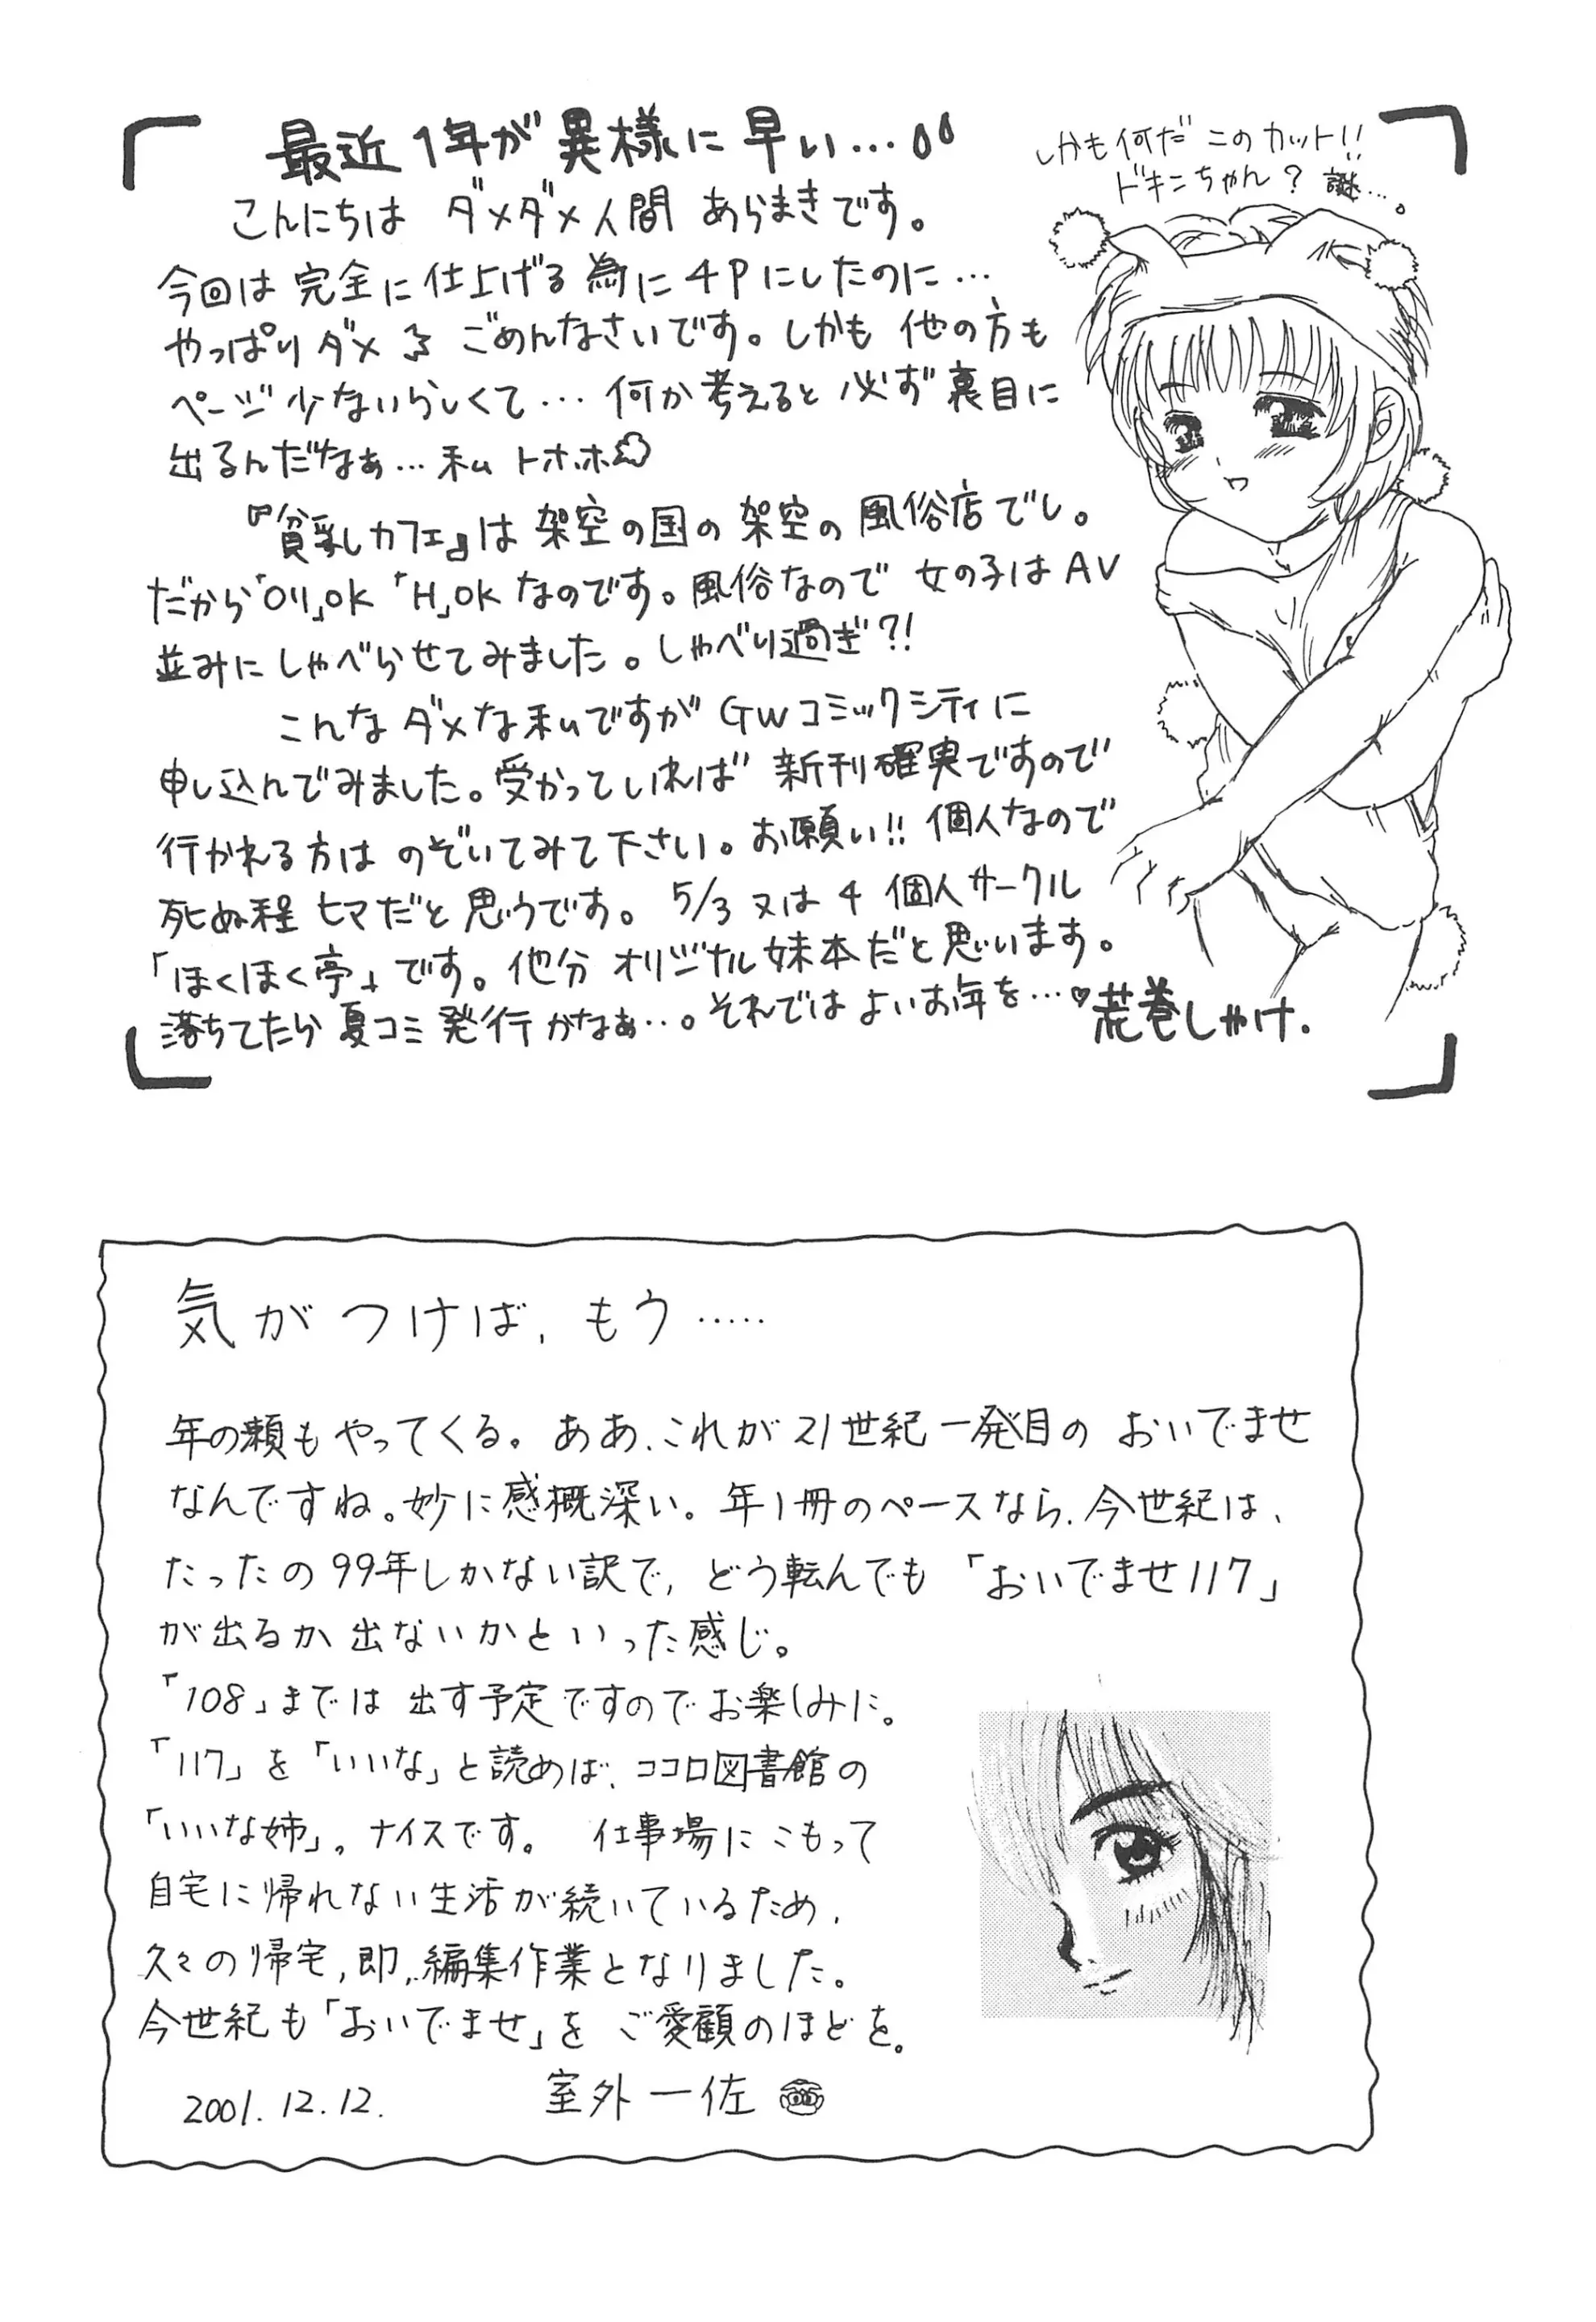 最近1年が異様に早い…
しかも何だ このカット!!
ドキンちゃん? 謎…。
こんにちは ダメダメ人間 あらまきです。
今回は 完全に仕上げる為に4Pにしたのに…
やっぱりダメ ごめんなさいです。しかも 他の方も
ページ少ないらしくて… 何か考えると必ず裏目に
出るんだなぁ… 私 トホホ
『貧乳カフェ』は 架空の国の架空の風俗店でし。
だから「ロリ」OK「H」OKなのです。風俗なので 女の子はAV
並みにしゃべらせてみました。しゃべり過ぎ?!
こんなダメな私ですが GWコミックシティに
申し込んでみました。受かっていれば 新刊確実ですので
行かれる方は のぞいてみて下さい。お願い!! 個人なので
死ぬ程 ヒマだと思うです。5/3又は4 個人サークル
「ほくほく亭」です。他分 オリジナル妹本だと思います。
落ちてたら夏コミ発行かなぁ…。それではよいお年を…♡荒巻しゃけ.
気がつけば、もう……
年の瀬もやってくる。ああ、これが21世紀一発目の おいでませ
なんですね。妙に感概深い。年1冊のペースなら、今世紀は、
たったの99年しかない訳で、どう転んでも「おいでませ117」
が出るか出ないかといった感じ。
「108」までは 出す予定ですのでお楽しみに。
「117」を「いいな」と読めば、ココロ図書館の
「いいな姉」。ナイスです。 仕事場にこもって
自宅に帰れない生活が続いているため、
久々の帰宅,即,編集作業となりました。
今世紀も「おいでませ」を ご愛顧のほどを。
2001.12.12. 室外一佐